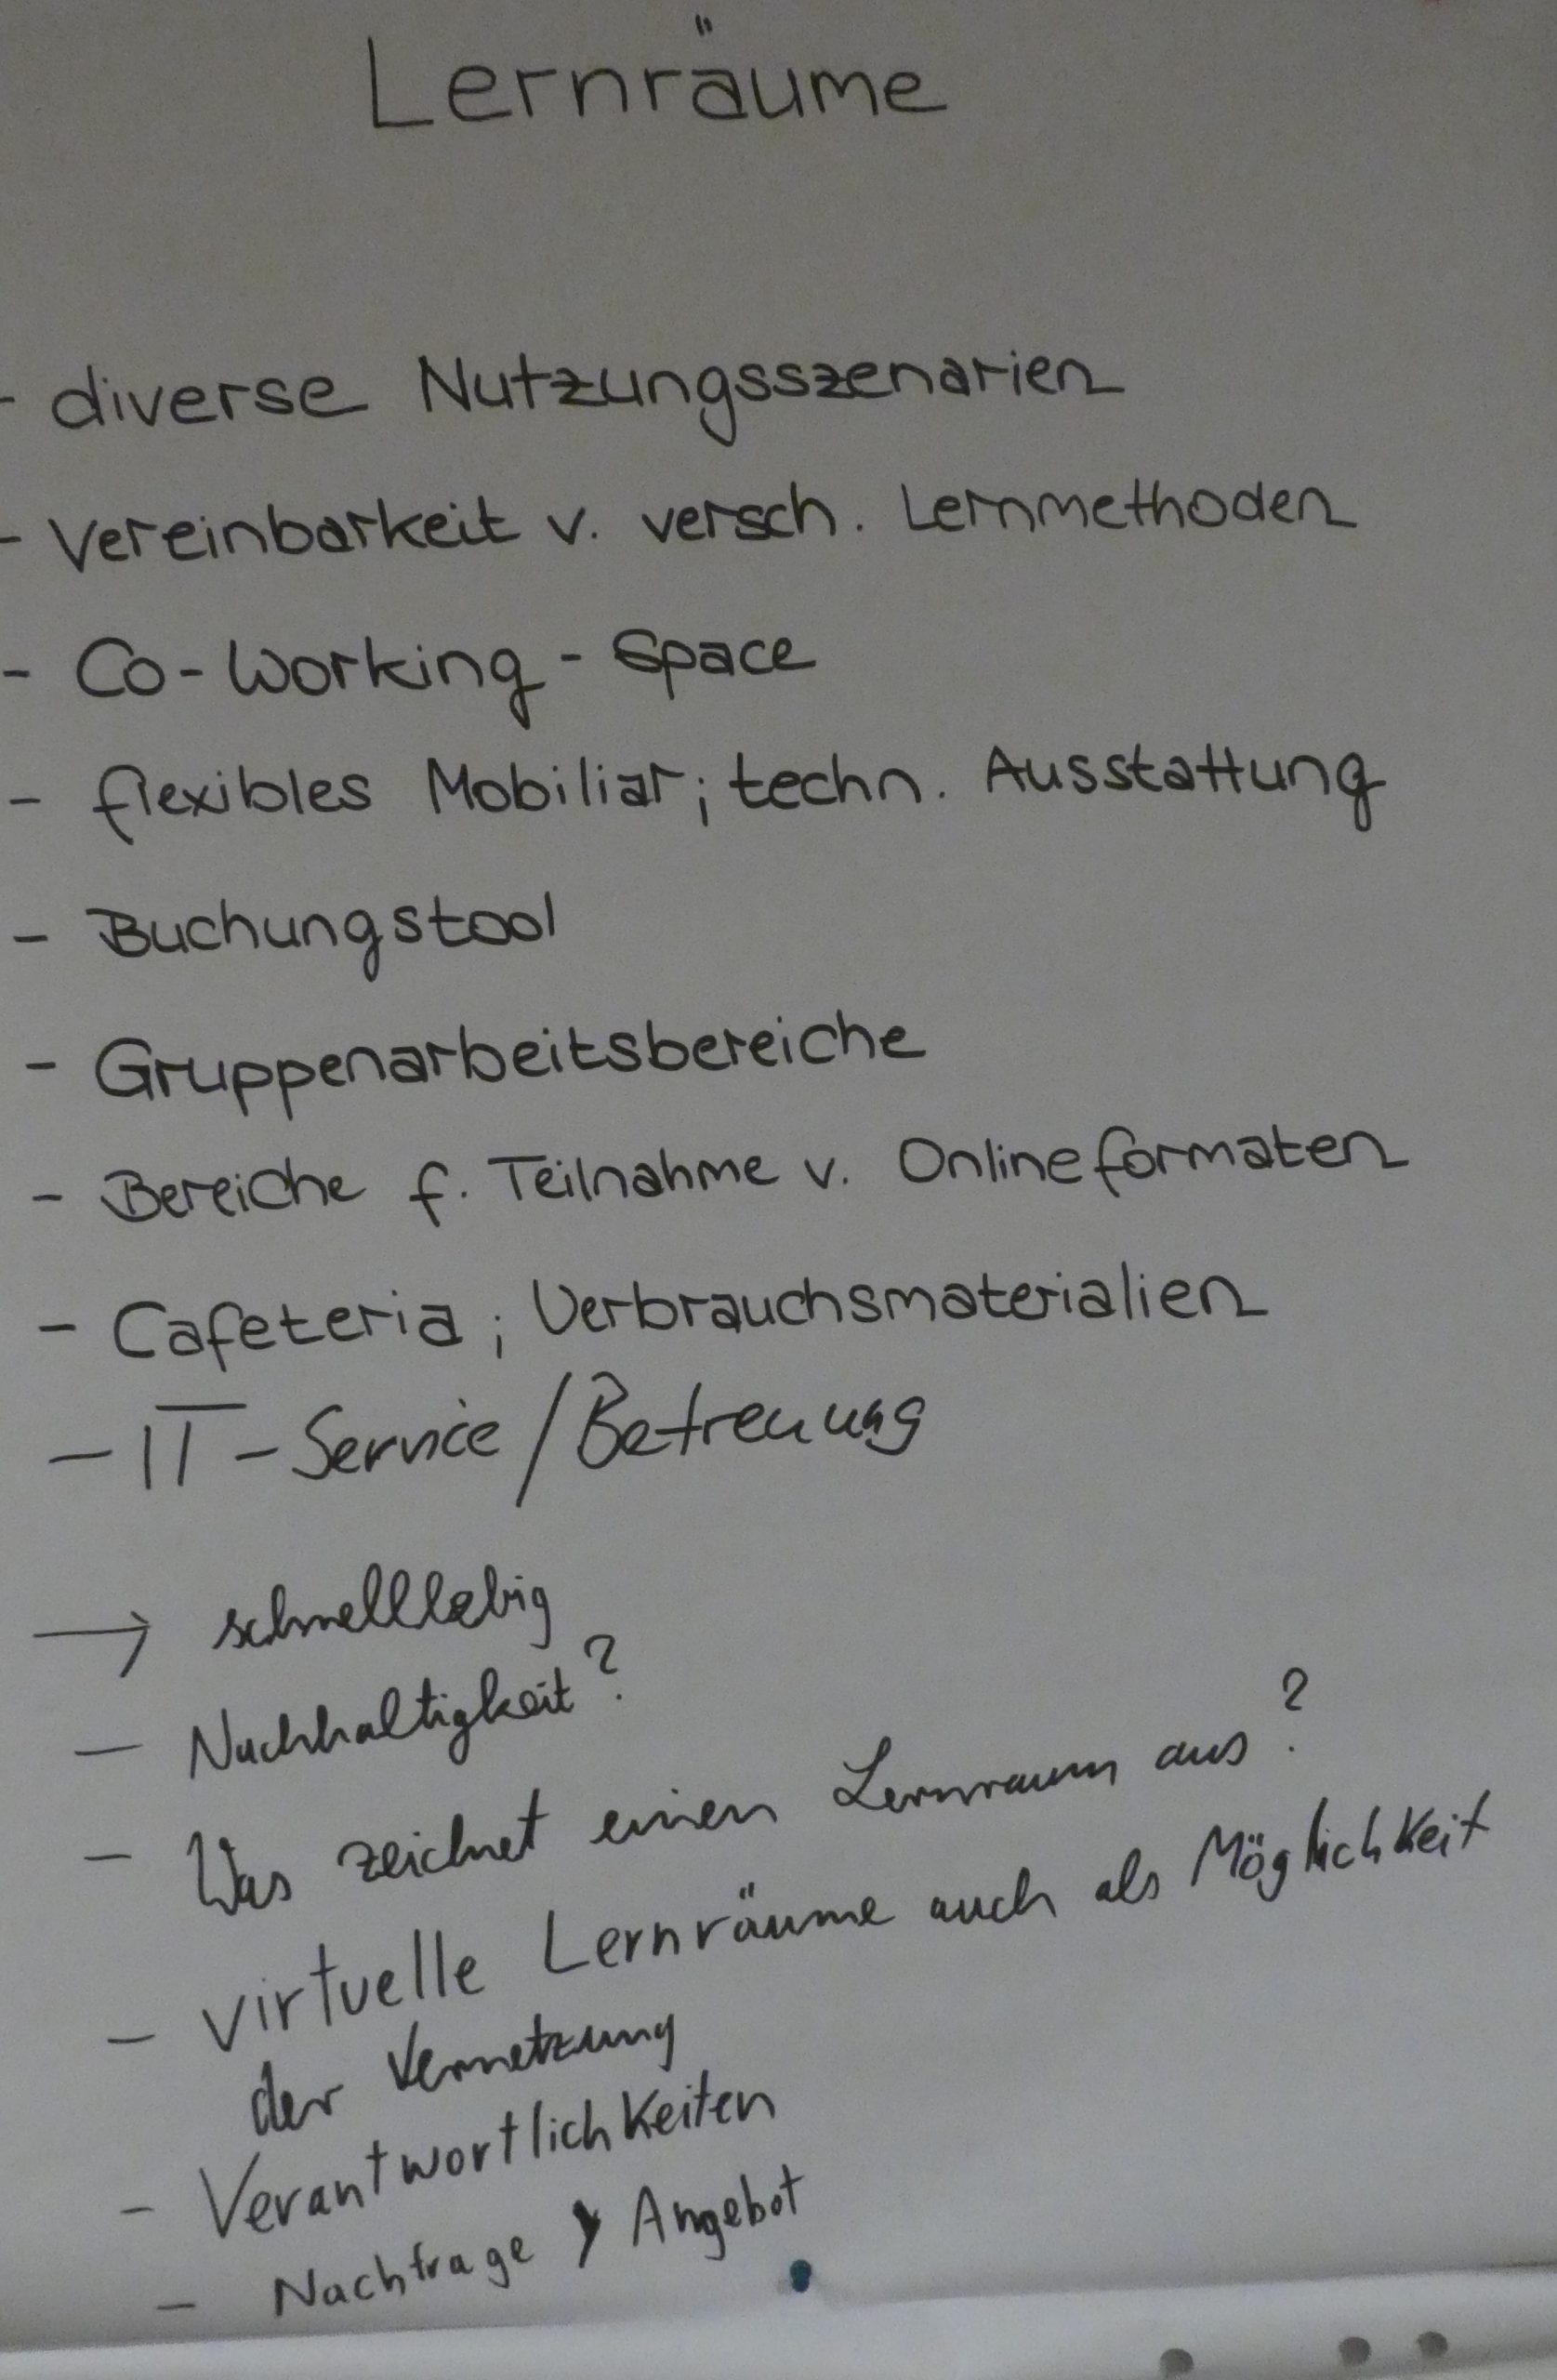 Lernräume
- diverse Nutzungsszenarien
- Vereinbarkeit v. versch. Lernmethoden
- Co-Working-Space
- flexibles Mobiliar; techn. Ausstattung
- Buchungstool
- Gruppenarbeitsbereiche
- Bereiche f. Teilnahme v. Onlineformaten
- Cafeteria; Verbrauchsmaterialien
- IT-Service/Betreuung
→ schnelllebig
- Nachhaltigkeit?
- Was zeichnet einen Lernraum aus?
- virtuelle Lernräume auch als Möglichkeit
der Vernetzung
- Verantwortlichkeiten
- Nachfrage > Angebot